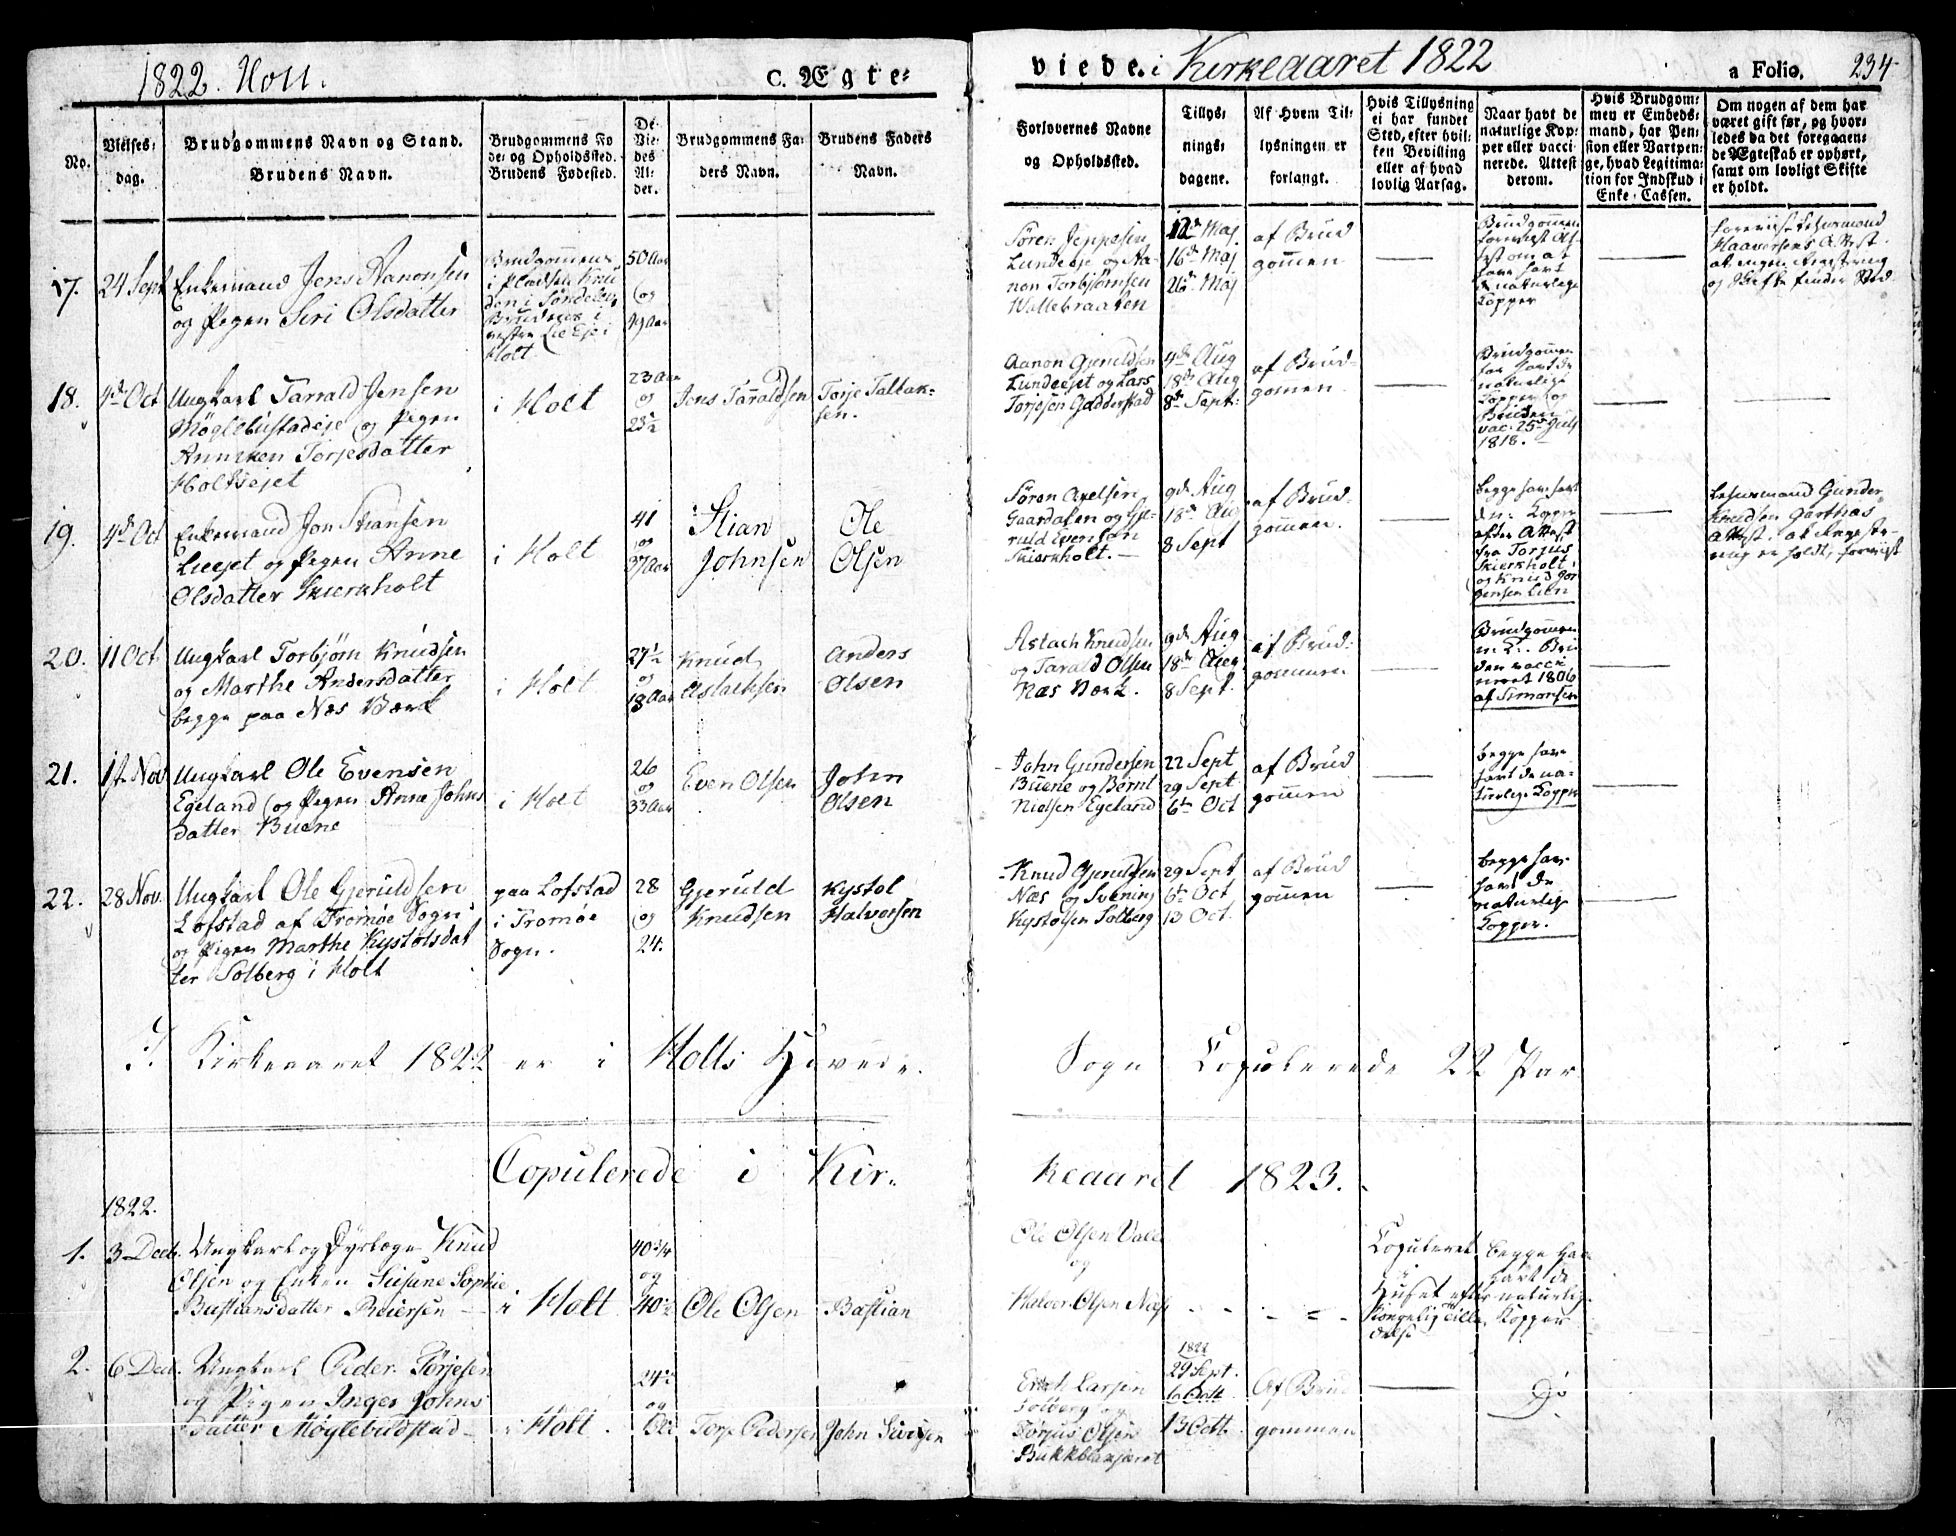 1822. Holt.
C. Ægte-
viede i Kirkeaaret 1822
a Folio. 234
No.
Vielses-
dag.
Brudgommens Navn og Stand.
Brudens Navn.
Brudgommens Fø
de- og Opholdssted.
Brudens Fødested.
De
Vie-
des
Al-
der.
Brudgommens Fa-
ders Navn.
Brudens Faders
Navn.
Forlovernes Navne
og Opholdssted.
Tillys-
nings-
dagene.
Af Hvem Til-
lysningen er
forlangt.
Hvis Tillysning
ei har fundet
Sted, efter hvil-
ken Bevilling
eller af hvad
lovlig Aarsag.
Naar havt de
naturlige Kop-
per eller vacci
nerede. Attest
derom.
Hvis Brudgom-
men er Embeds-
mand, har Pen-
sion eller Vartpen-
ge, hvad Legitima-
tion for Indskud i
Enke-Cassen.
Om nogen af dem har
været gift før, og hvor-
ledes da det foregaaen-
de Ægteskab er ophørt,
samt om lovligt Skifte
er holdt.
17. 24 Sept
Enkemand Jens Aanonsen
og Pigen Siri Olsdatter
Brudgommens
i Pladsen
den i Søndeled
Brudens i
vestre Lie Eje i
Holt
50 Aar
og
49 Aar
Søren Jeppesen
Lundeeje og Aa-
non Torbjørnsen
12te Maj
16de Maj
26de Maj
af Brud
gommen
Brudgommen
forevist At-
test om at
have havt
de naturlige
Kopper
forevist Lehnsmand
Haavorsens Attest
at ingen
og Skifte finder Sted
18. 4de Oct
Ungkarl Tarrald Jensen
Møglebustadeje og Pigen
Anniken Torjesdatter
Holtsejet
i Holt
23 Aar
og
23½
Jens Tarraldsen
Torje Talbak-
sen.
Aanon Gjeruldsen
Lundeejet og Lars
Torjesen Gjedderstad
4de Aug
18de Aug
8de Sept:
af Brud-
gommen
Brudgommen
har havt de
naturlige
Kopper og
Bruden
vac. 25de July
1818.
19. 4de Oct
Enkemand Jon Stiansen
Lieejet og Pigen Anne
Olsdatter Skierkholt
i Holt
41
og
37 Aar
Stian
Johnsen
Ole
Olsen
Søren Axelsen
Gaardalen og Gje-
ruld Evensen
Skierkholt.
9de Aug
18de Aug
8 Sept
af Brud-
gommen.
begge have havt
de n. Kopper
efter Attest
fra Torjus
Skierkholt
og Knud Jør
gensen Lien
Lehnsmand Gunder
Knudsen Garthas
Attest at
er holdt, forevist
20. 11 Oct
Ungkarl Torbjørn Knudsen
og Marthe Andersdatter
begge paa Næs Værk
i Holt
27½
og
18 Aar
Knud
Aslaksen
Anders
Olsen
Aslach Knudsen
og Tarald Olsen
Næs Værk.
9de Aug
18de Aug
8 Sept.
af Brud-
gommen
Brudgommen
n. K. Bru
den vacci
neret 1806
af Simonsen
21. 1st Nov
Ungkarl Ole Evensen
Egeland og Pigen Anne Johns
datter Buene
i Holt
26
og
33 Aar
Even Olsen
John
Olsen
John Gundersen
Buene og Bernt
Nielsen Egeland
22 Sept
29 Sept
6te Oct
af Brud
gommen
begge have
havt de na-
turlige Kopper
22. 28 Nov.
Ungkarl Ole Gjeruldsen
Lofstad af Tromøe Sogn
og Pigen Marthe Kystolsdat
ter Solberg i Holt
paa Lofstad
i Tromøe
Sogn.
28
og
24.
Gjeruld
Knudsen
Kystol
Halvorsen
Knud Gjeruldsen
Næs og Svening
Kystolsen Solberg
29 Sept
6te Oct
13 Oct.
af Brud
gommen
begge hav
havt de
naturlige
Kopper.
I Kirkeaaret 1822 er i Holts Hoved-
Sogn Copulerede 22 Par
Copulerede i Kir-
keaaret 1823.
1822.
1. 3 Decb.
Ungkarl og Dyrlæge Knud
Olsen og Enken Susane Sophie
Bastiansdatter Reiersen
i Holt
40 3/4
og
40½
Ole Olsen
Bastian
Ole Olsen Valle
og
Halvor Olsen Næs
Copuleret
i
Huset efter
Kongelig Tilla
delse
begge hav
havt de
naturlig.
Kopper
2. 6 Decb.
Ungkarl Peder Tørjesen
og Pigen Inger Johns
datter Møglebustad
i Holt.
24½
og
Torje Pedersen
John Sivesen
Erik Larsen
Solberg og
Tørjus Olsen
1822
29 Sept.
6 Octb.
13 Octb.
Af Brud
gommen
Do